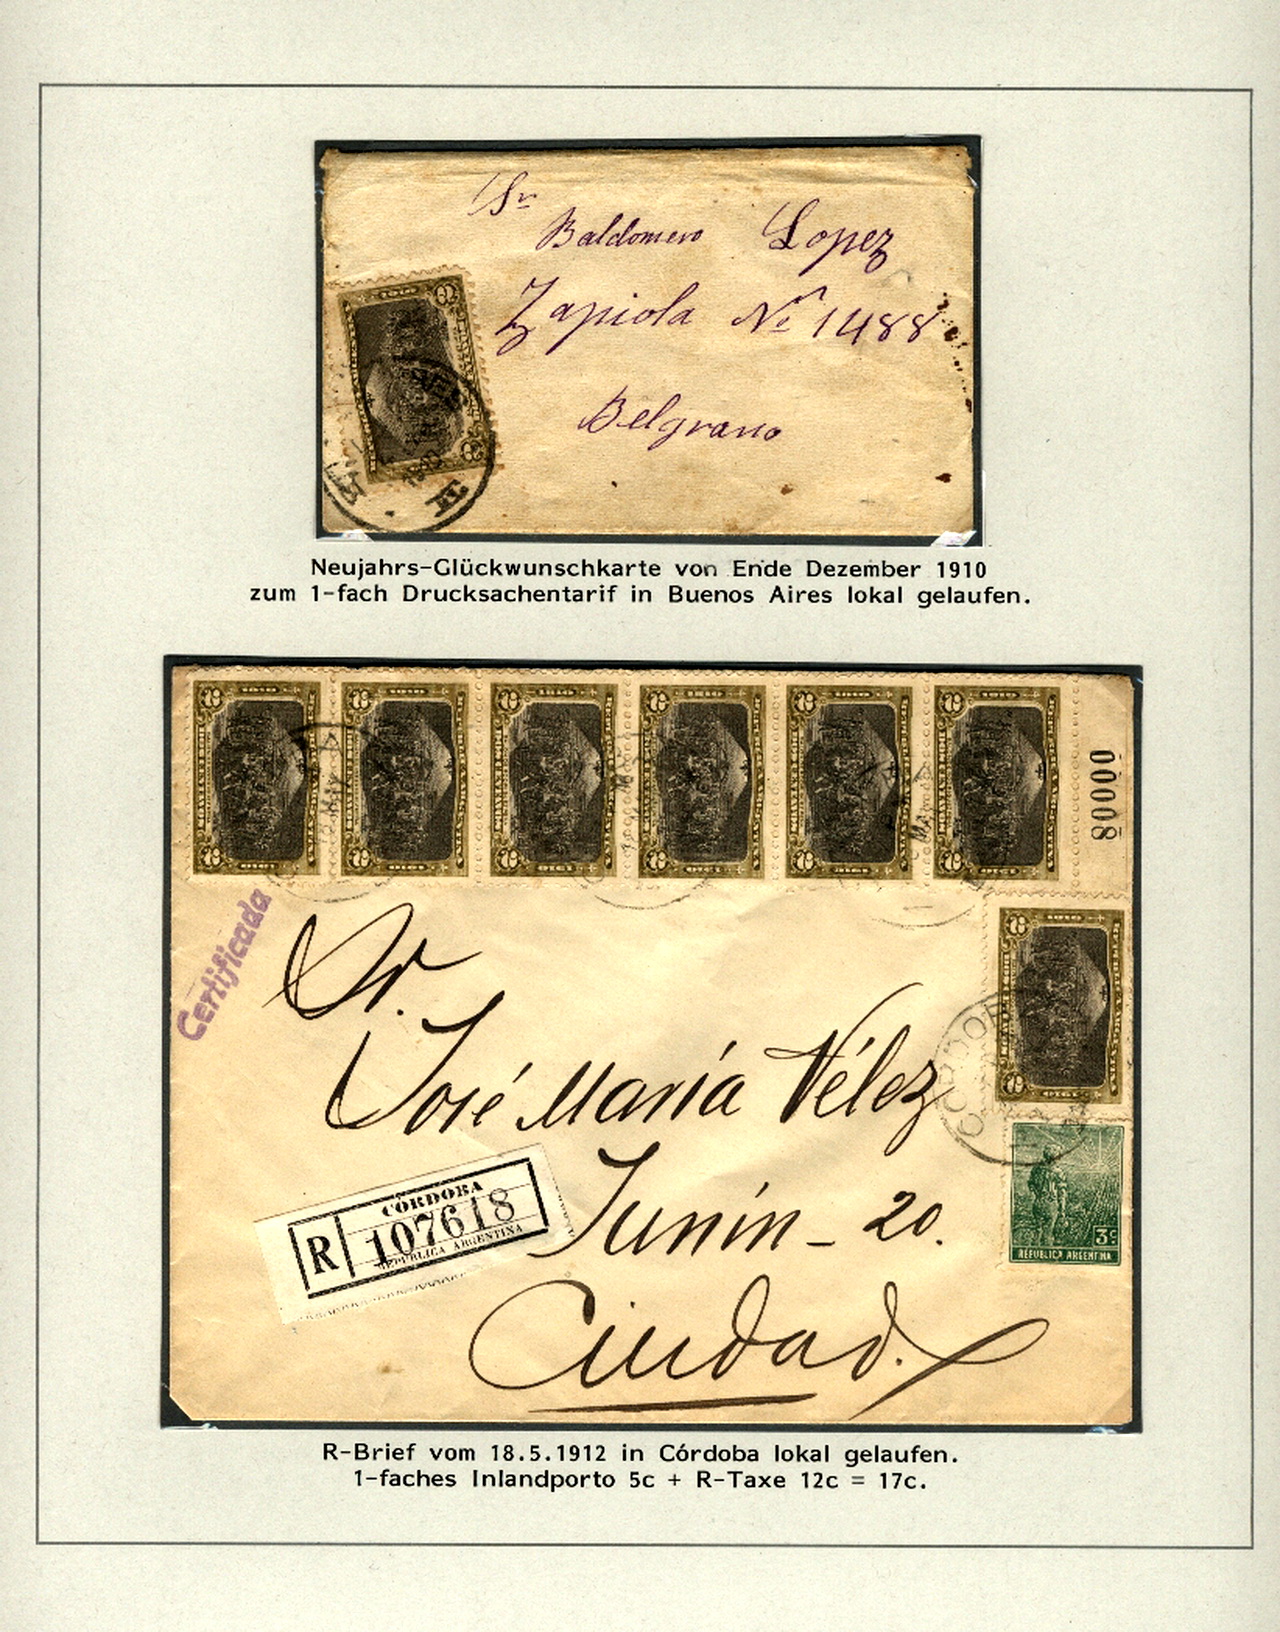 Sr
Baldomero Lopez
Zapiola No 1488
Belgrano
1910
Neujahrs-Glückwunschkarte von Ende Dezember 1910
zum 1-fach Drucksachentarif in Buenos Aires lokal gelaufen.
1910 1910 1910 1910 1910 1910
00008
Certificada
Sr.
José María Vélez
Junín - 20.
Ciudad.
1910
CORDOBA
3c
REPUBLICA ARGENTINA
CÓRDOBA
R 107618
REPUBLICA ARGENTINA
R-Brief vom 18.5.1912 in Córdoba lokal gelaufen.
1-faches Inlandporto 5c + R-Taxe 12c = 17c.